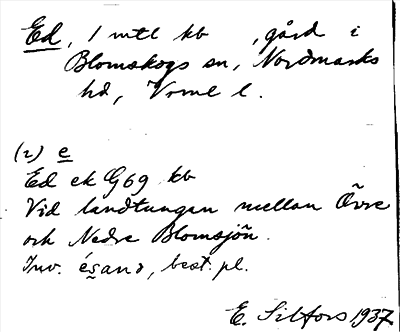 Ed, 1 mtl kb , gård i
Blomskogs sn, Nordmarks
hd, Vrml l.
(2) e
Ed ek G69 kb
Vid landtungan mellan Övre
och Nedre Blomsjön.
Inv. best. pl.
E. Silfors 1937